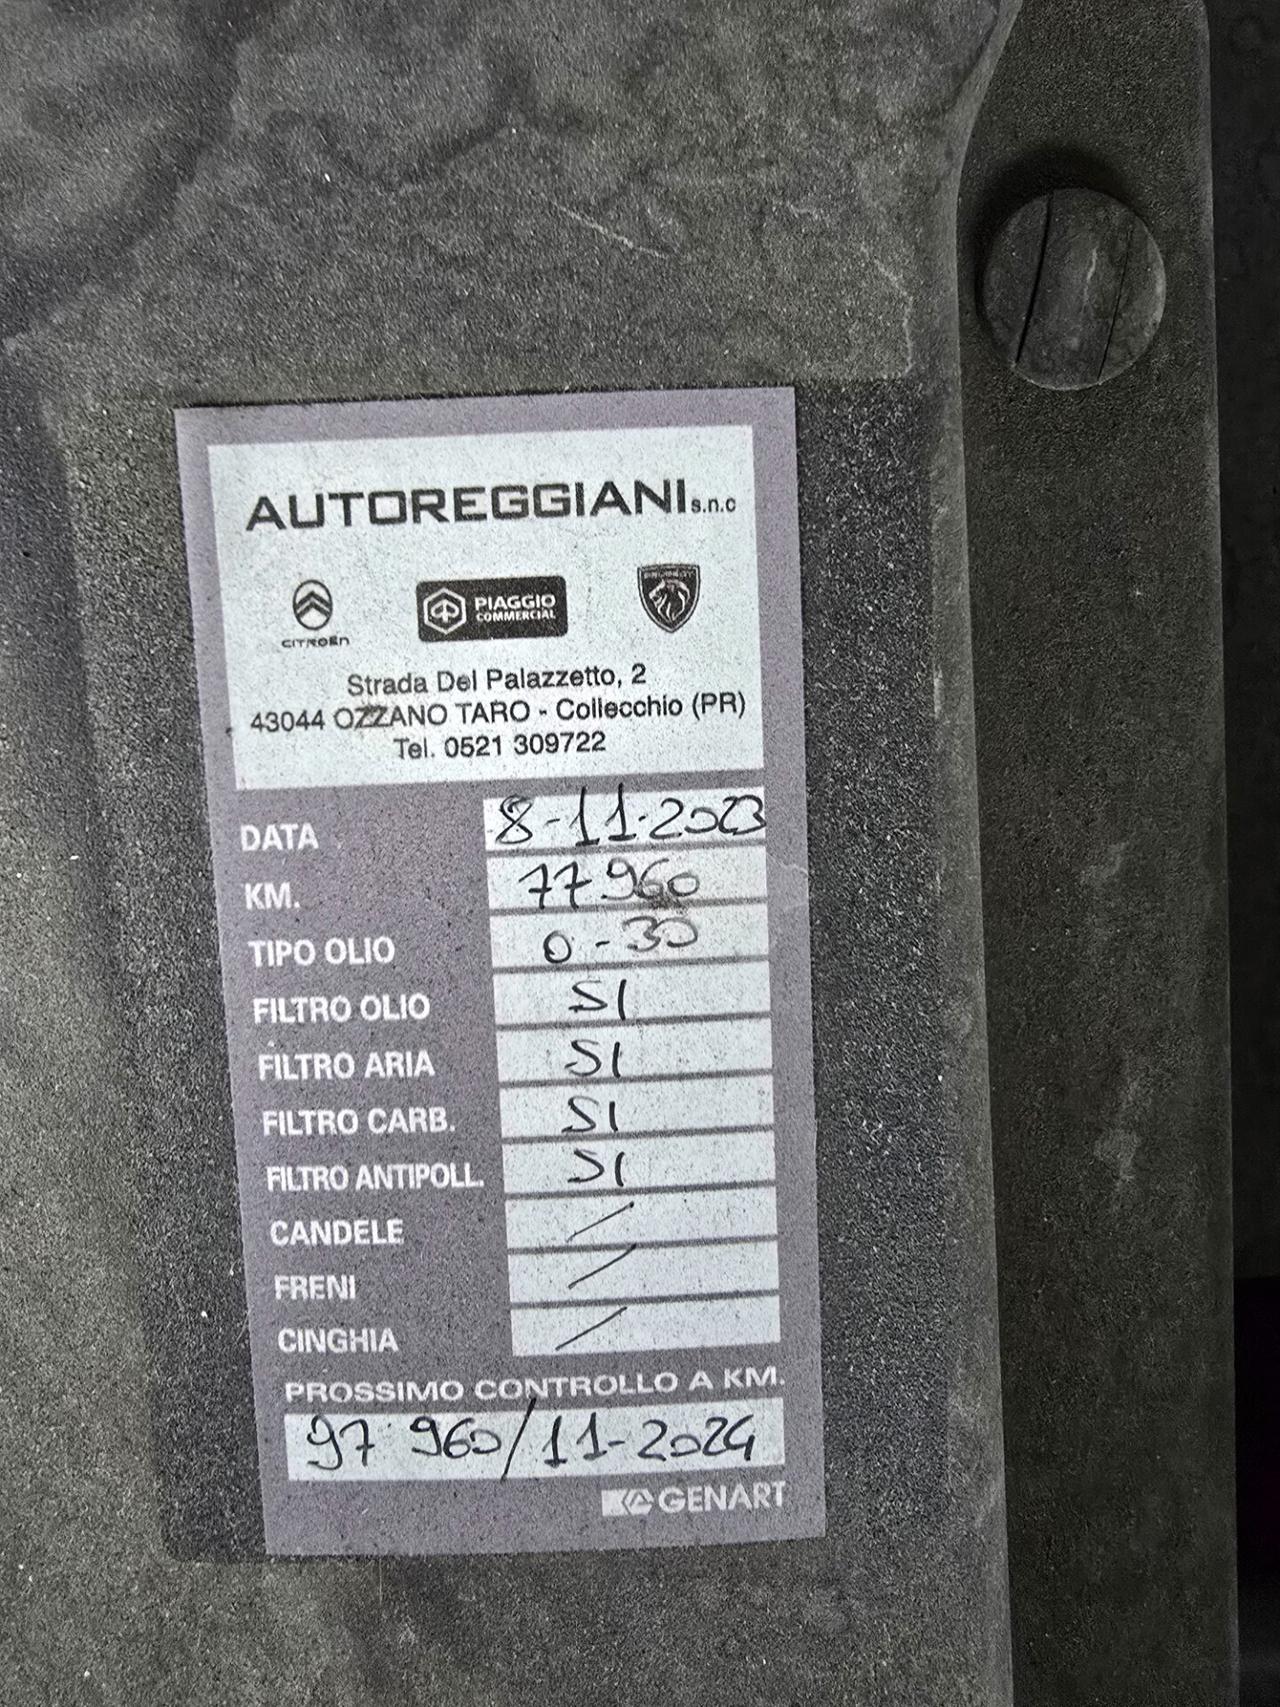 AUTOREGGIANI s.n.c
CITROËN
PIAGGIO
COMMERCIAL
PEUGEOT
Strada Del Palazzetto, 2
43044 OZZANO TARO - Collecchio (PR)
Tel. 0521 309722
DATA 8-11-2023
KM. 77960
TIPO OLIO 0-30
FILTRO OLIO SI
FILTRO ARIA SI
FILTRO CARB. SI
FILTRO ANTIPOLL. SI
CANDELE /
FRENI /
CINGHIA /
PROSSIMO CONTROLLO A KM.
97960/11-2024
GENART